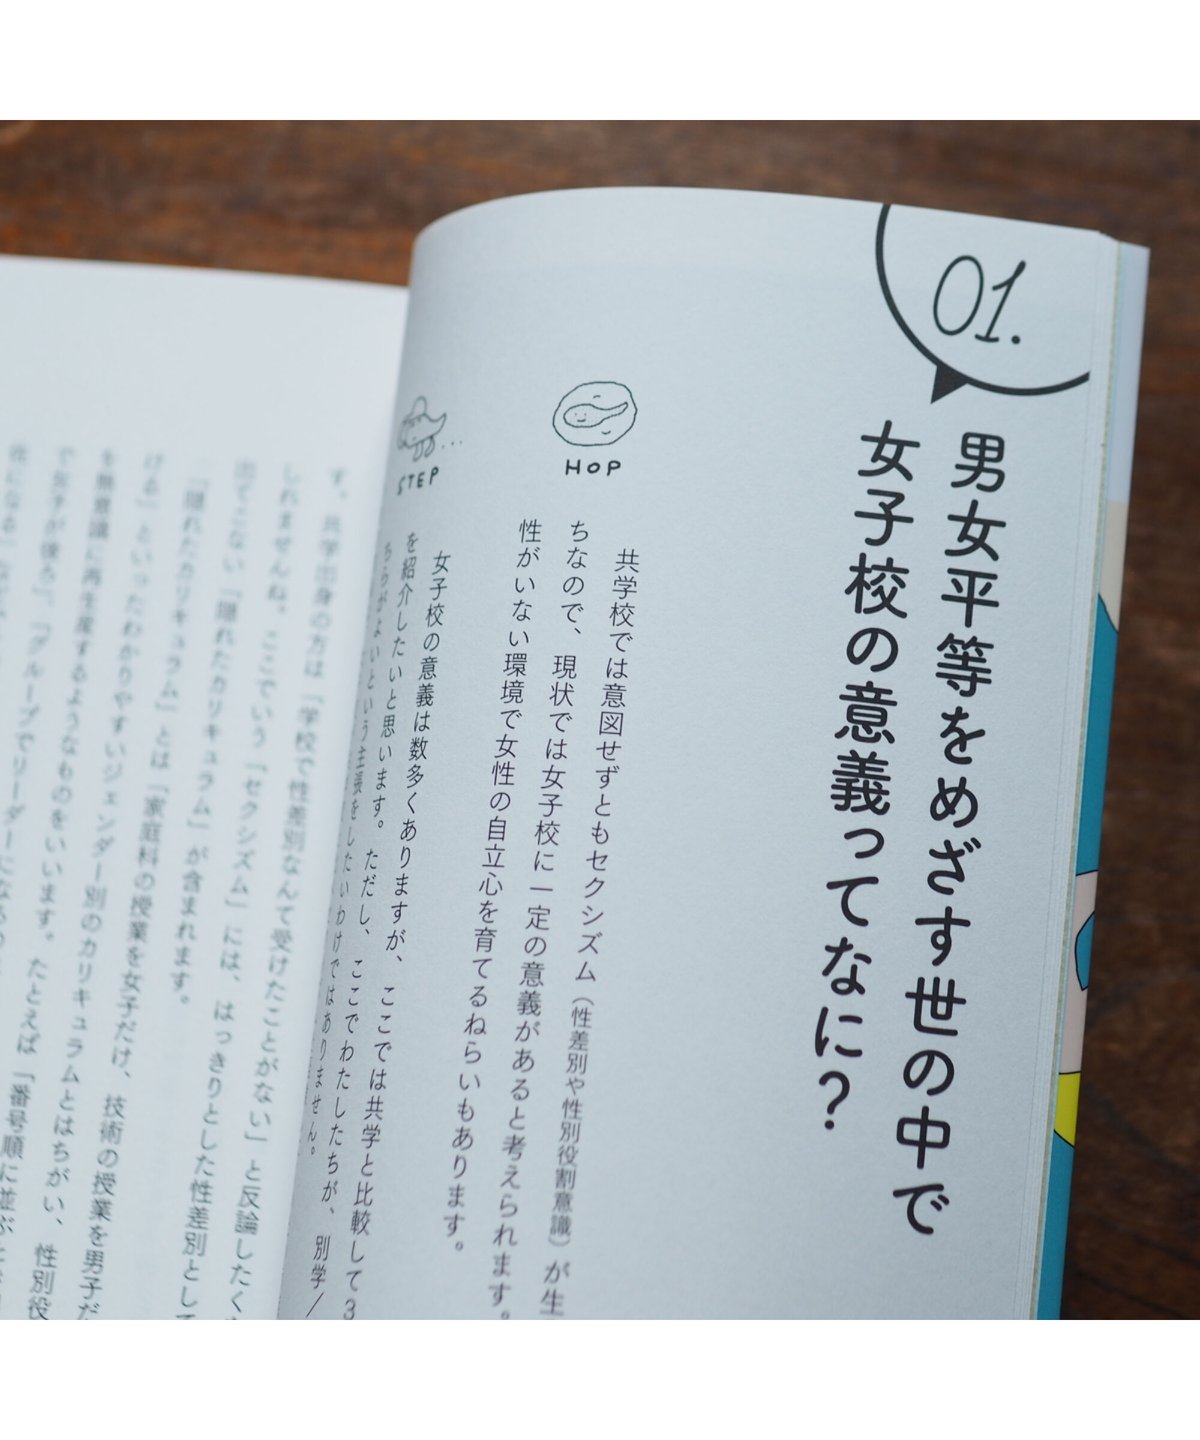 01.
男女平等をめざす世の中で
女子校の意義ってなに？
HOP
共学校では意図せずともセクシズム（性差別や性別役割意識）が生
ちなので、現状では女子校に一定の意義があると考えられます。
性がいない環境で女性の自立心を育てるねらいもあります。
STEP
女子校の意義は数多くありますが、ここでは共学と比較して3
を紹介したいと思います。ただし、ここでわたしたちが、別学／
ちらがよいという主張をしたいわけではありません。
す。共学出身の方は「学校で性差別なんて受けたことがない」と反論したく
しれませんね。ここでいう「セクシズム」には、はっきりとした性差別として
出てこない「隠れたカリキュラム」が含まれます。
「隠れたカリキュラム」とは「家庭科の授業を女子だけ、技術の授業を男子だ
ける」といったわかりやすいジェンダー別のカリキュラムとはちがい、性別役
を無意識に再生産するようなものをいいます。たとえば「番号順に並ぶ
で女子が後ろ」、「グループでリーダーになる